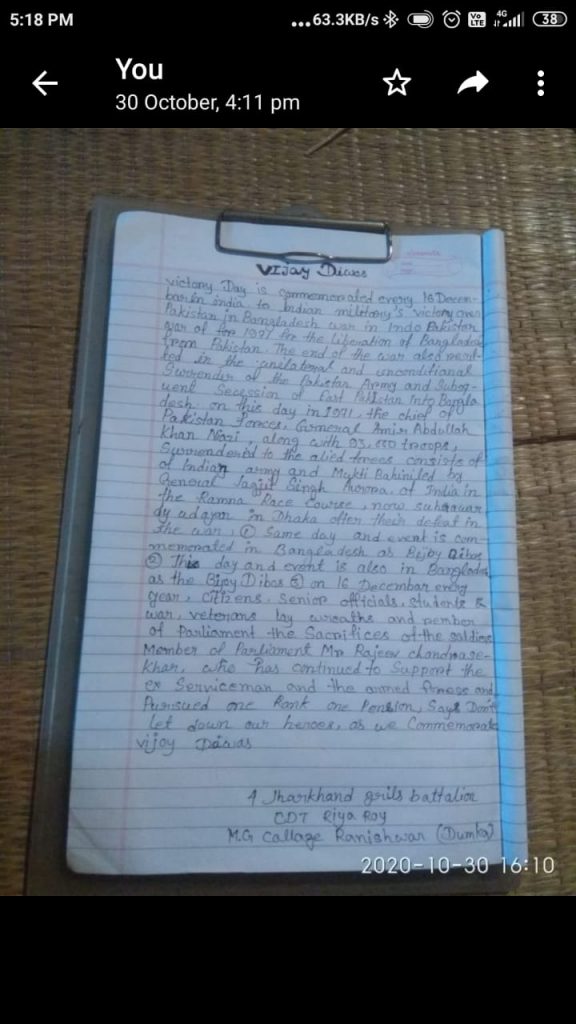 5:18 PM
...63.3KB/s
Vo
LTE
4G
38
You
30 October, 4:11 pm
Vijay Diwas
victory Day is commemorated every 16 Decem-
bar in india to Indian military's victory over
Pakistan in Bangladesh war in Indo Pakistan
war of for 1971 for the Liberation of Bangladesh
from Pakistan. The end of the war also resul-
ted in the unilateral and unconditional
Surrender of the Pakistan Army and Subeq-
uent Secession of East Pakistan Into Bangla
desh. on this day in 1971, the chief of
Pakistan Forces, General Amir Abdullah
Khan Niazi, along with 93,000 troops,
Surrendered to the alied forces consists of
of Indian army and Mukti Bahini led by
General Jagjit Singh Aurora, of India in
the Ramna Race Course, now suhrawar
dy udayan in Dhaka after their defeat in
the war, ① Same day and event is com-
memorated in Bangladesh as Bijoy Dibos
② This day and event is also in Banglades
as the Bijoy Dibos ③ on 16 Decembar every
year, citizens, Senior officials, Students &
war, veterans lay wreaths and
of Parliament the Sacrifices of the soldiers
Member of Parliament Mr Rajeev chandrase-
khar, who has continued to Support the
ex Serviceman and the armed forces and
Pursued one Rank one Pension, Says Don't
let down our heroes, as we Commemorate
vijoy
4 Jharkhand grils battalion
CDT Riya Roy
M.G Callage Ranishwar (Dumka)
2020-10-30 16:10